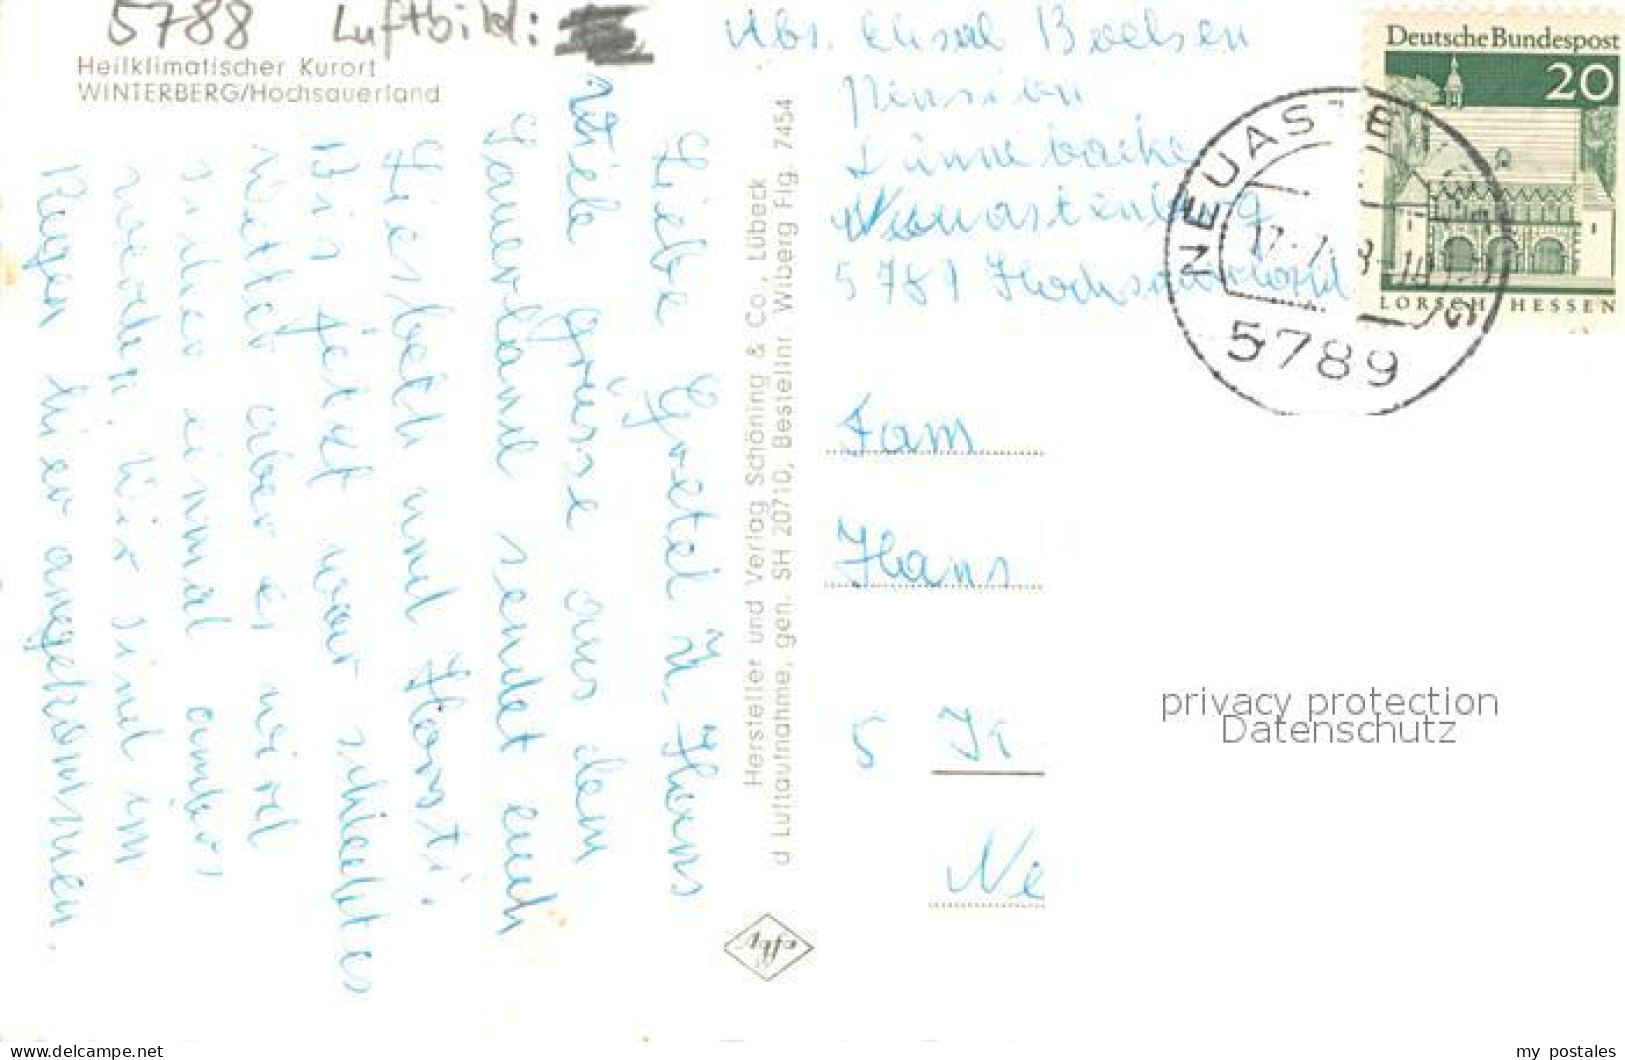 5788 Luftbild:
Heilklimatischer Kurort
WINTERBERG/Hochsauerland
Liebe Gretel u. Hans
Viele Grüsse aus dem
Sauerland sendet euch
Liesbeth und Horsti.
Bis jetzt war schlechtes
Wetter aber es wird
sicher einmal anders
werden. Wir sind im
Regen hier angekommen.
Hersteller und Verlag Schöning & Co., Lübeck
d Luftaufnahme, gen. SH 20710, Bestellnr. Wiberg Flg. 7454
Abs.
Pension
Neuastenberg
5789 Hochsauerland
Deutsche Bundespost
20
LORSCH HESSEN
NEUASTE
5789
Fam
Hans
5
Ne
privacy protection
Datenschutz
my postales